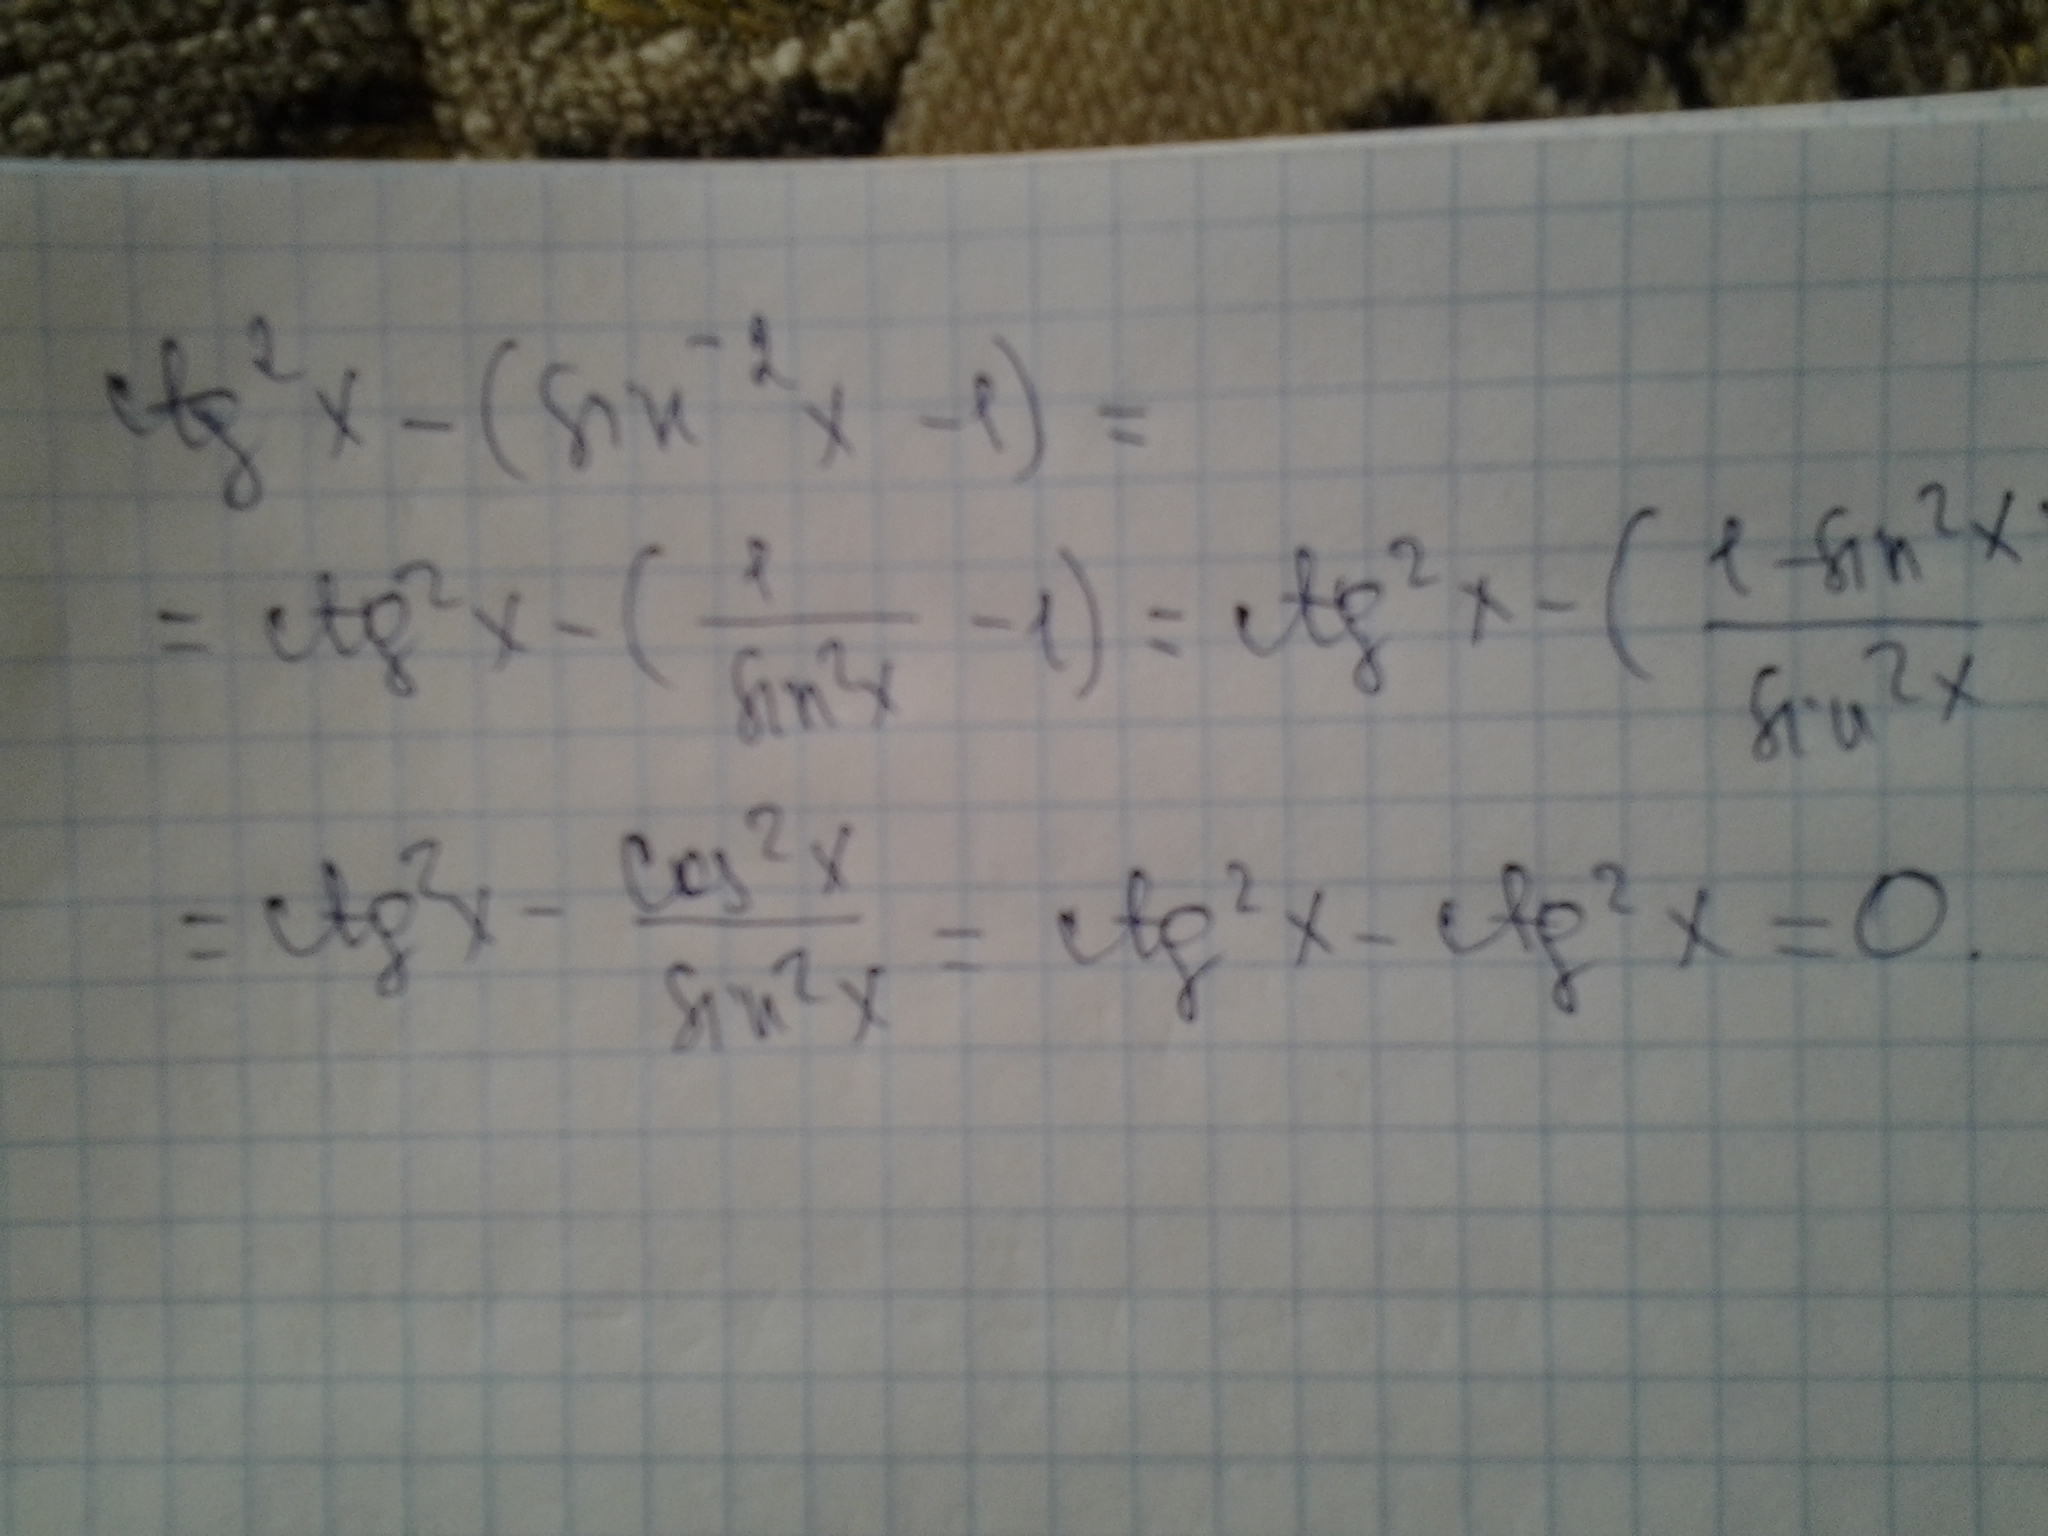 ctg²x - (sin⁻²x - 1) =
= ctg²x - (1/sin²x - 1) = ctg²x - (1 - sin²x/sin²x
= ctg²x - cos²x/sin²x = ctg²x - ctg²x = 0.